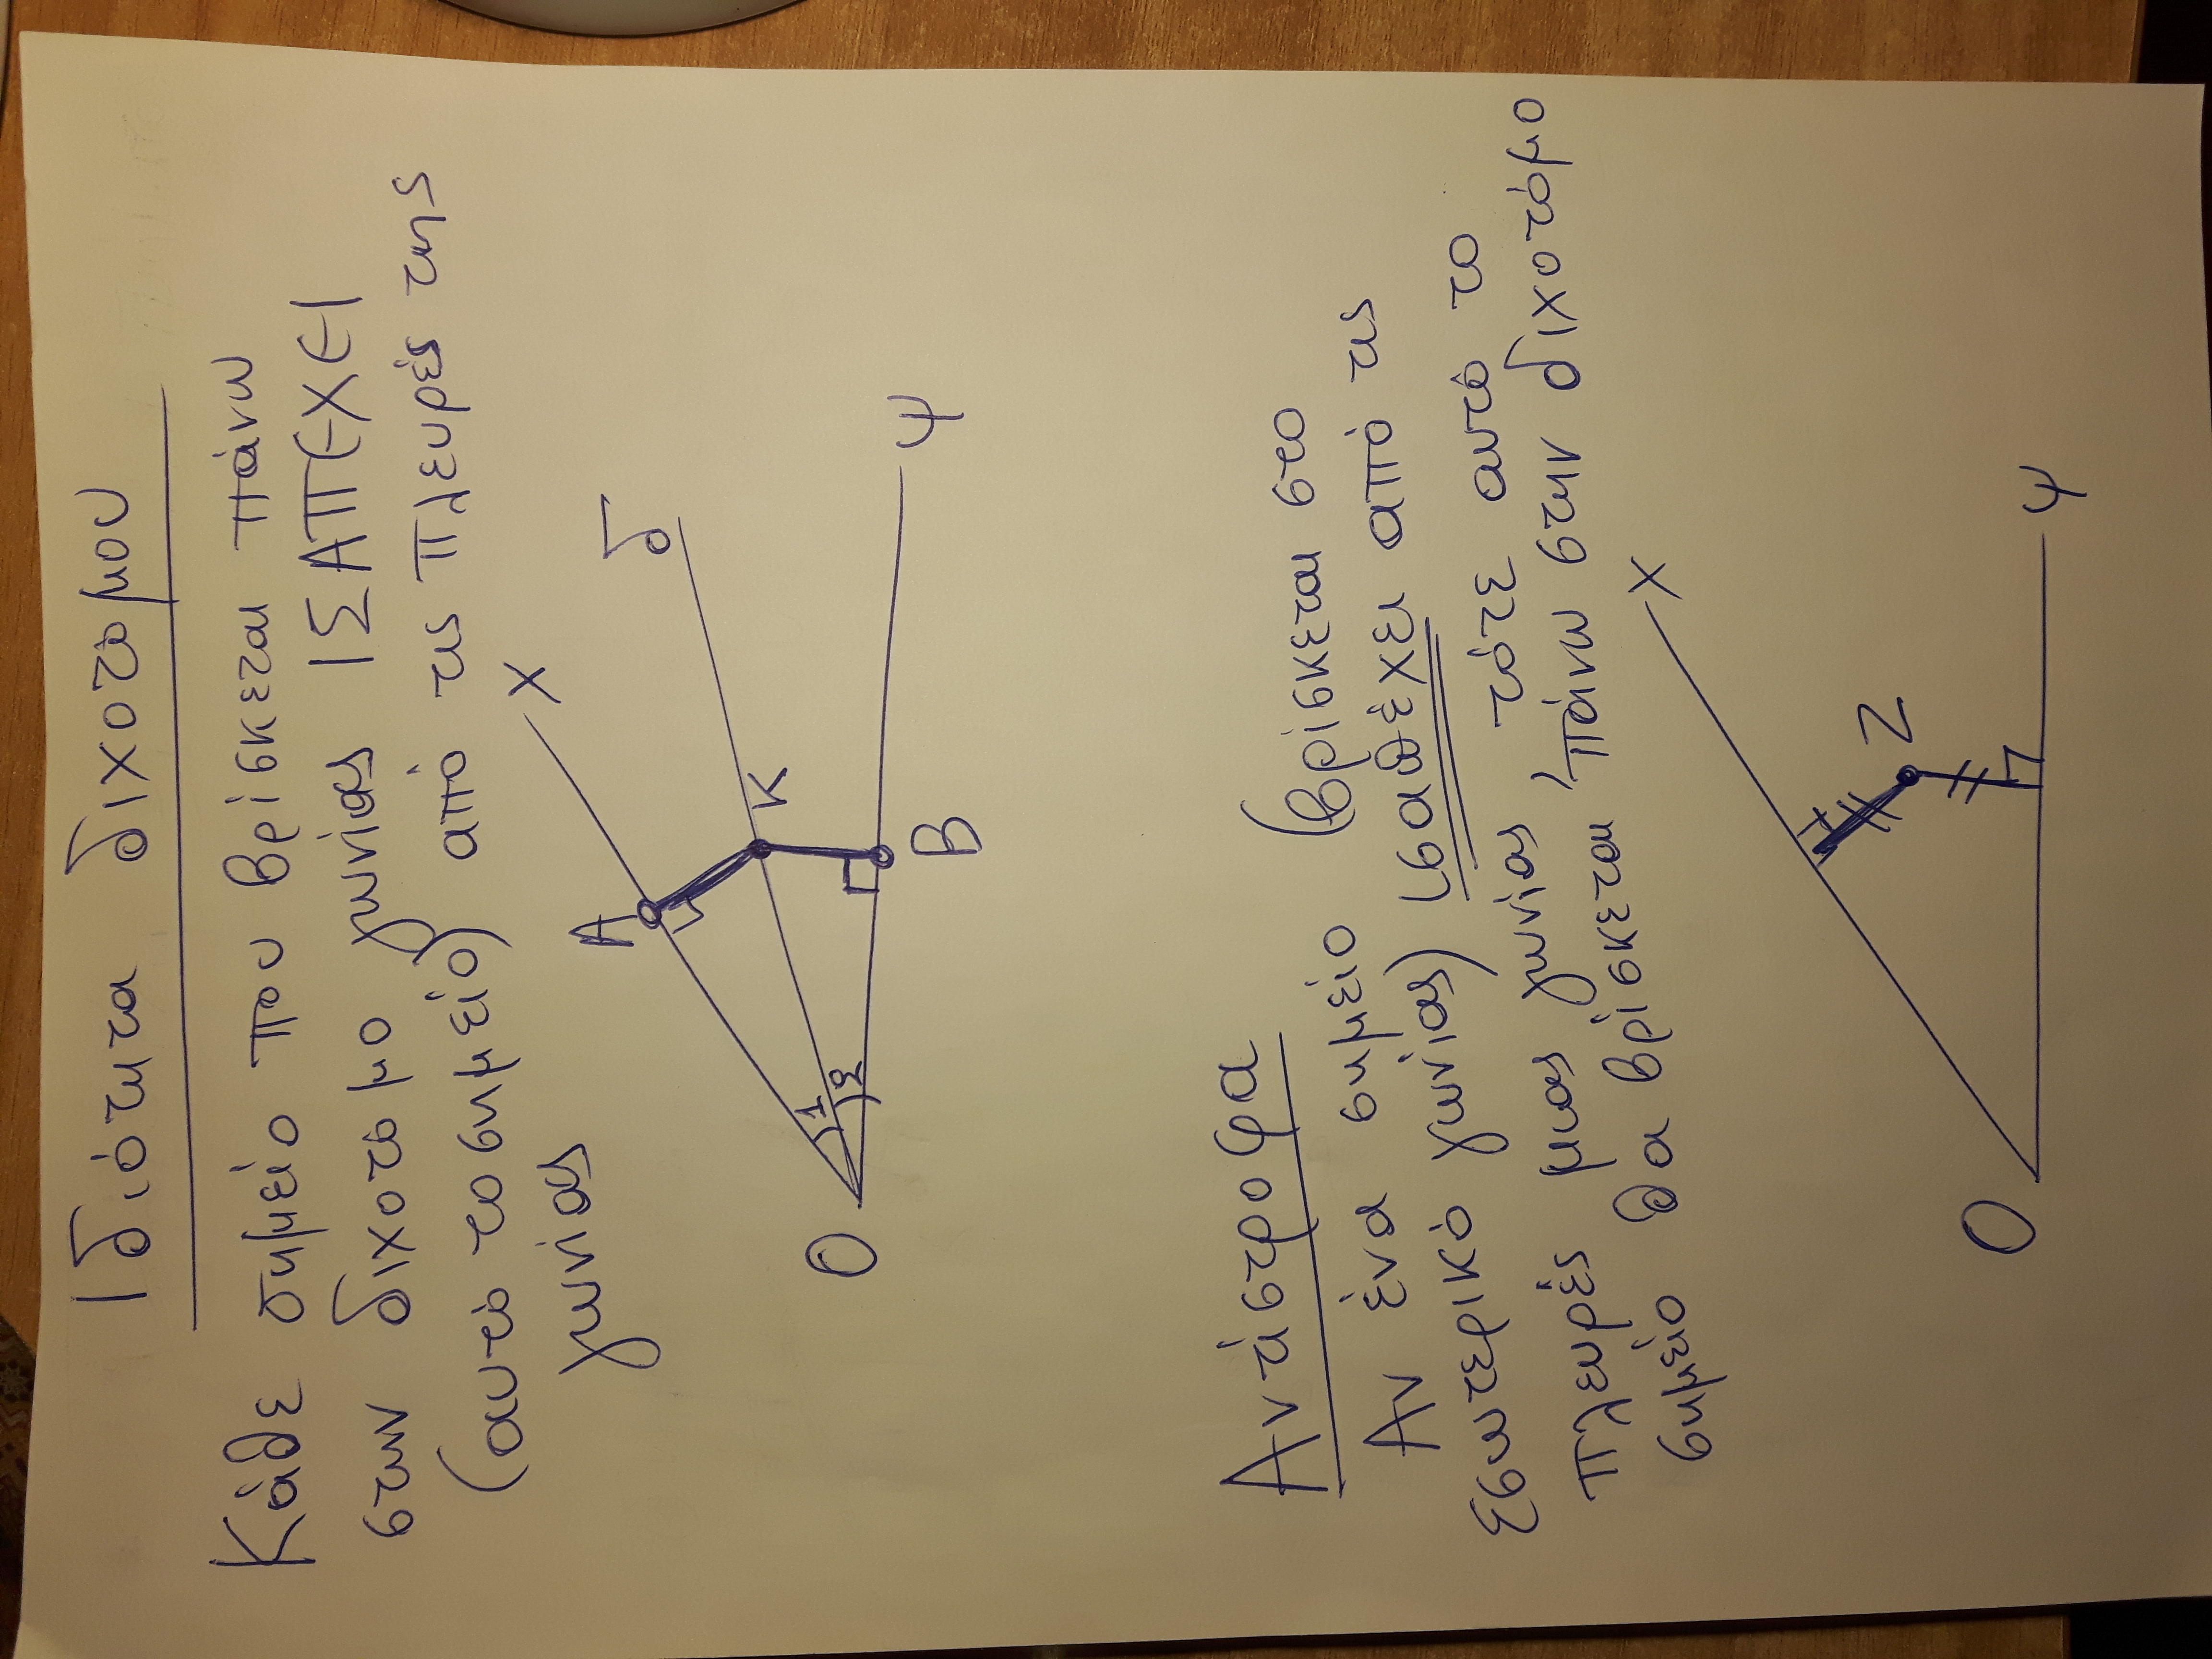 Ιδιότητα διχοτόμου
Κάθε σημείο που βρίσκεται πάνω
στην διχοτόμο γωνίας ΙΣΑΠΕΧΕΙ
(αυτό το σημείο) από τις πλευρές της
γωνίας
Χ
δ
Α
Κ
1
2
Ο
Β
Ψ
Αντίστροφα
Αν ένα σημείο (βρίσκεται στο
εσωτερικό γωνίας) ισαπέχει από τις
πλευρές μιας γωνίας, τότε αυτό το
σημείο θα βρίσκεται πάνω στην διχοτόμο
Χ
Ζ
Ο
Ψ